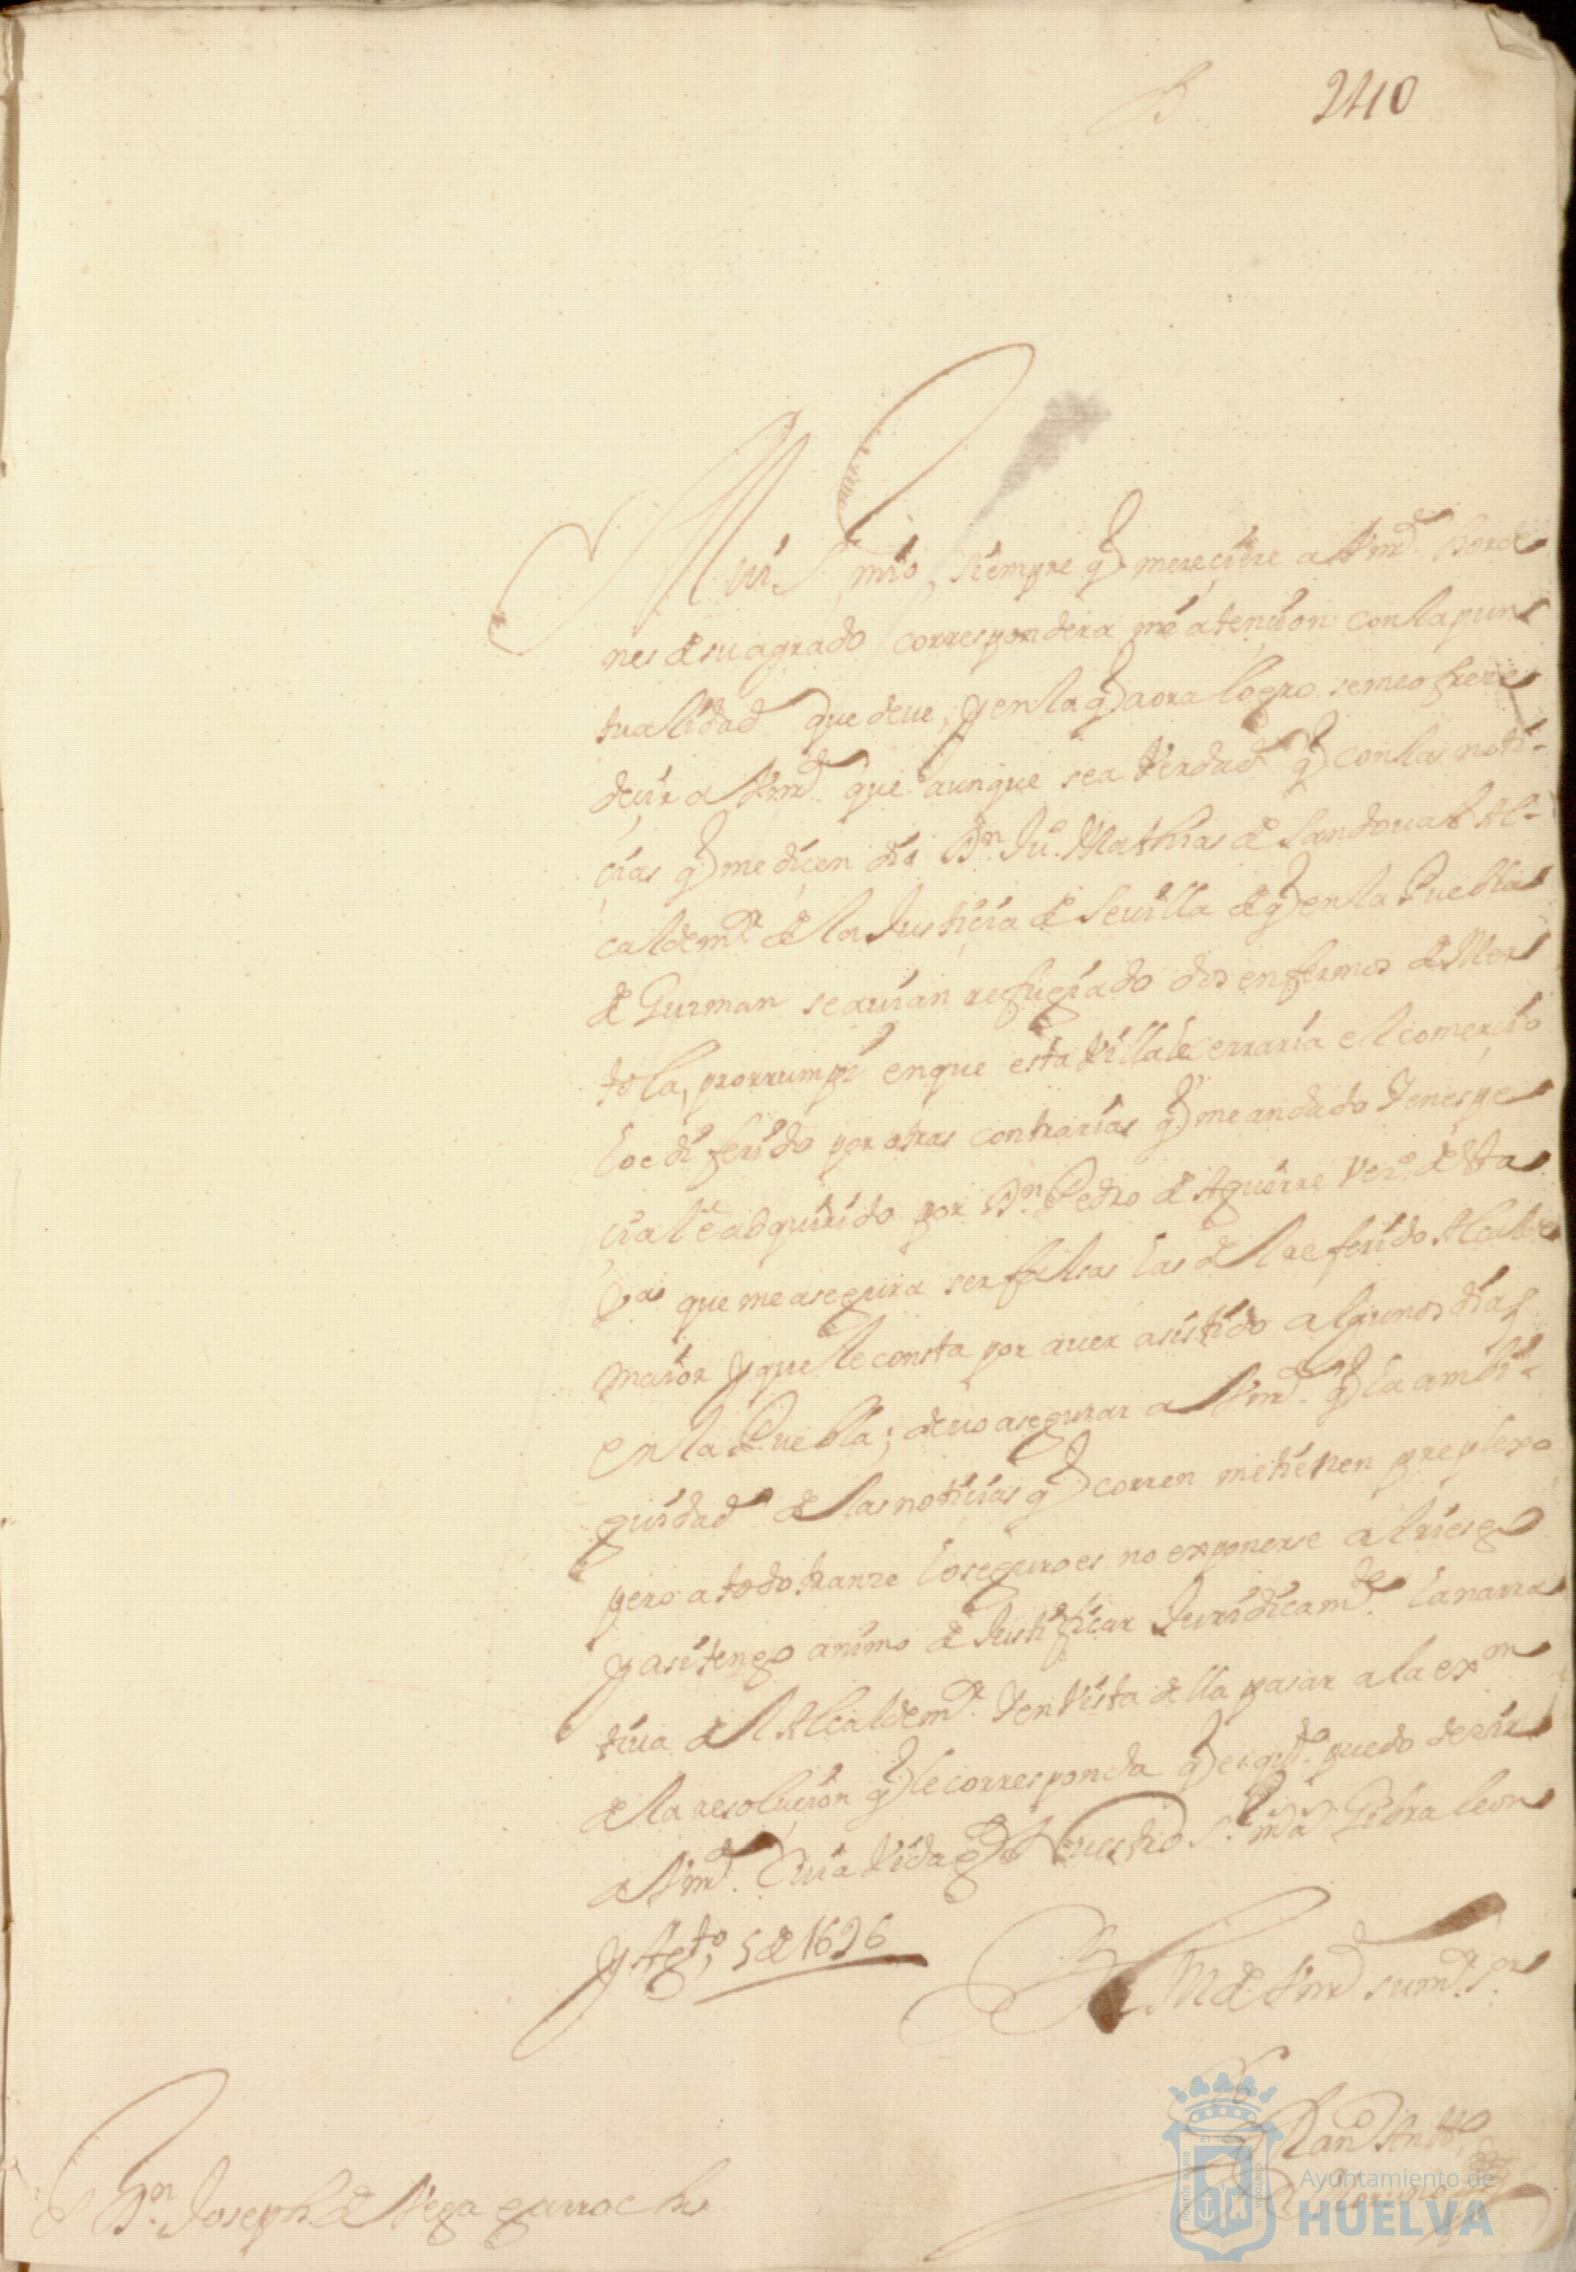 240
Mui S.r mio, siempre q mereciere a Vmd horde
nes de su agrado correspondera mi atencion con la pun
tualidad que deue, y en la q aora logro se me ofrece
decir a Vmd que aunque sea Verdad q con las noti-
cias q me dicen dio Dn. Ju.o Mathias de Sandoual Al-
calde m.r de la Justicia de Seuilla de q en la Puebla
de Guzman se auian refugiado dos enfermos de Mer
tola, prorrumpi en que esta Villa le cerraria el comercio
lo e diferido por otras contrarias q me an dado Y en espe
cial le adquirido por Dn. Pedro de Aguirre Vez.o de esta
que me asegura ser falsas las del referido Alcalde
maior y que le consta por auer asistido algunos dias
en la Puebla; deuo asegurar a Vmd. q la ambi-
guidad de las noticias q corren me tienen preplexo
pero a todo tranze lo seguro es no exponerse al riesgo
y asi tengo animo de Justificar Juridicam.te la narra
tiua del Alcalde m.r Y en Vista della pasar a la ex.on
de la resolucion q le corresponda q es q.to puedo dezir
a Vmd. Cuia Vida g.de Nuestro S.r m.s a.s Gibraleon
y Ag.to 5 de 1696
B L M de Vmd su m.r s.or
Ant.o
Dn. Joseph de Vega garrocho
Ayuntamiento de
HUELVA